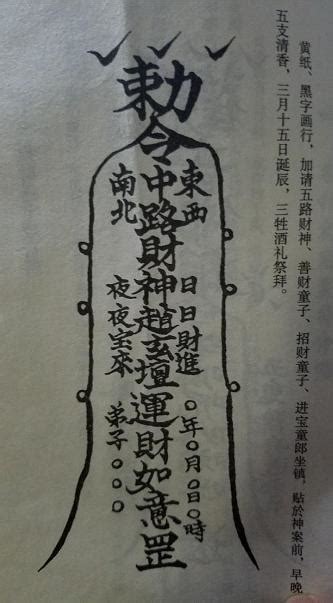 黄纸、黑字画行，加请五路财神、善财童子、招财童子、进宝童郎坐镇，贴於神案前，早晚
五支清香，三月十五日诞辰，三牲酒礼祭拜。
勅令
東西
南北
中路財神趙玄壇運財如意罡
日日財進
夜夜宝來
○年○月○日○時
弟子○○○